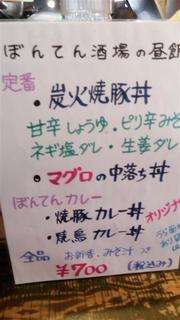 ぼんてん酒場の昼飯
定番
・炭火焼豚丼
甘辛しょうゆ・ピリ辛みそ
ネギ塩ダレ・生姜ダレ
・マグロの中落ち丼
ぼんてんカレー
・焼豚カレー丼
・焼鳥カレー丼
オリジナ
全品
お新香、みそ汁つき
¥700
(税込み)